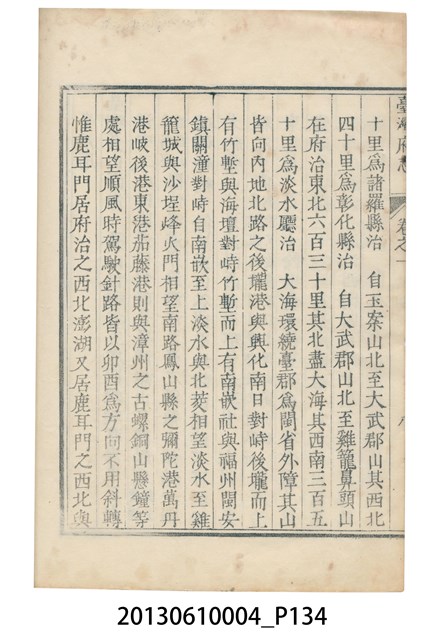 臺灣府志 卷之一
十里爲諸羅縣治 自玉案山北至大武郡山其西北
四十里爲彰化縣治 自大武郡山北至雞籠鼻頭山
在府治東北六百三十里其北盡大海其西南三百五
十里爲淡水廳治 大海環繞臺郡爲閩省外障其山
皆向內地北路之後壠港與興化南日對峙後壠而上
有竹塹與海壇對峙竹塹而上有南嵌社與福州閩安
鎮關潼對峙自南嵌至上淡水與北茭相望淡水至雞
籠城與沙埕烽火門相望南路鳳山縣之彌陀港萬丹
港岐後港東港茄藤港則與漳州之古螺銅山懸鐘等
處相望順風時駕駛針路皆以卯酉爲方向不用斜轉
惟鹿耳門居府治之西北澎湖又居鹿耳門之西北與
20130610004_P134